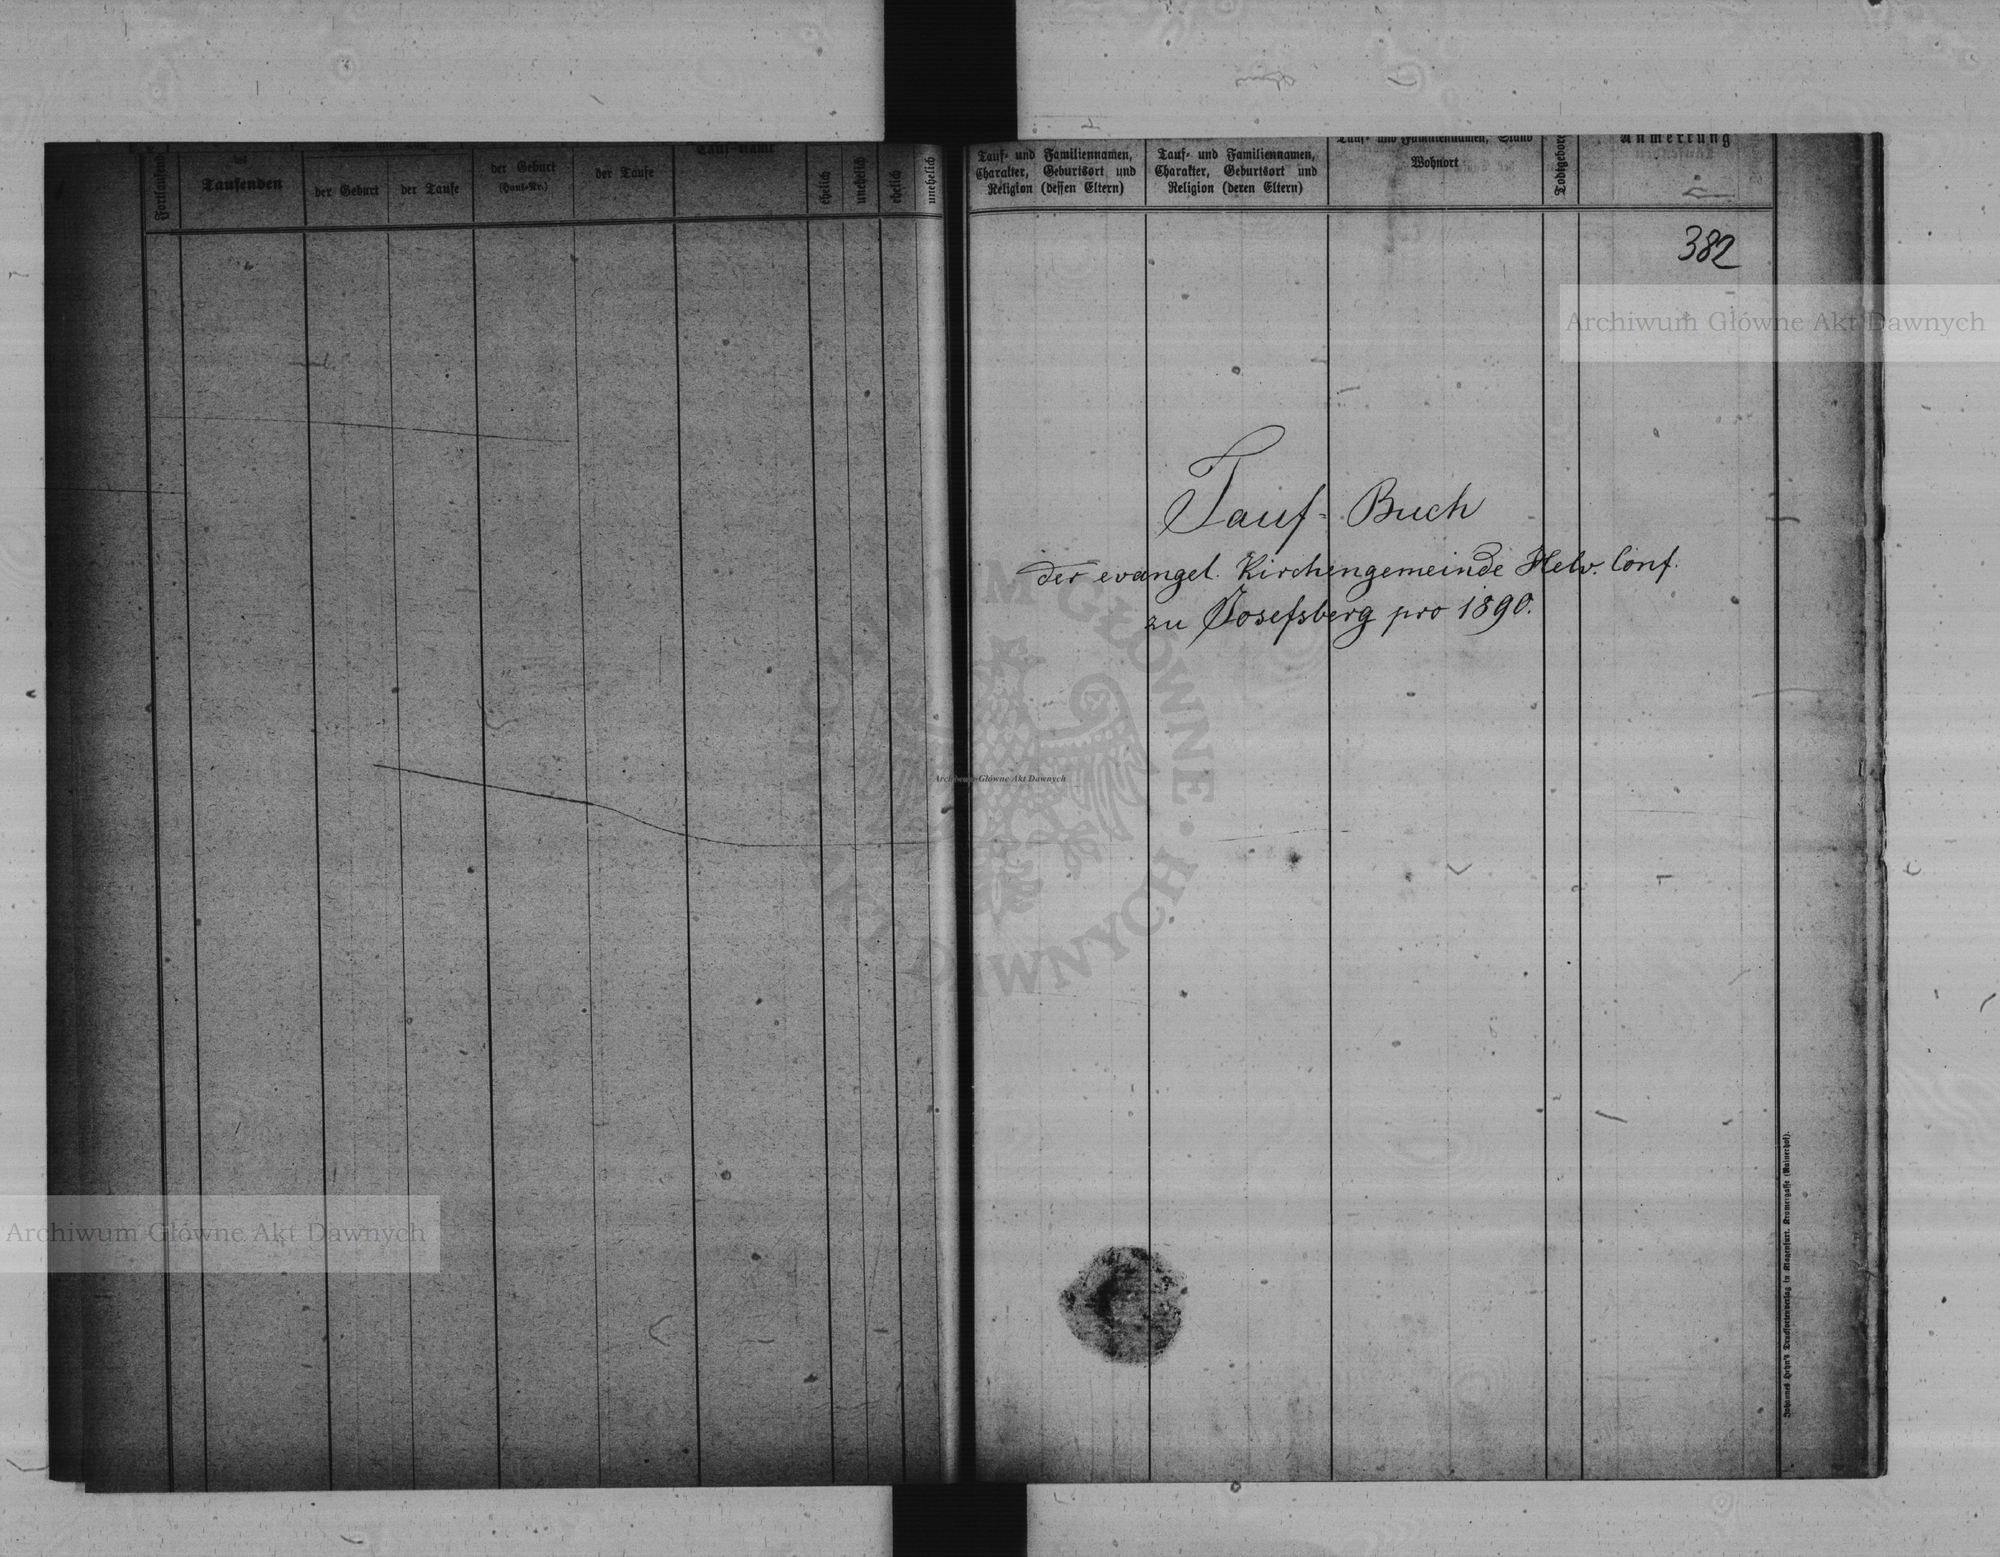 Fortlaufende
des
Taufenden
der Geburt
der Taufe
der Geburt
(Haus-Nr.)
der Taufe
Tauf-Name
ehelich
unehelich
ehelich
unehelich
Tauf- und Familiennamen,
Charakter, Geburtsort und
Religion (dessen Eltern)
Tauf- und Familiennamen,
Charakter, Geburtsort und
Religion (deren Eltern)
Tauf- und Familiennamen, Stand
Wohnort
Todtgeborene
Anmerkung
382
Archiwum Główne Akt Dawnych
Tauf- Buch
der evangel. Kirchengemeinde Helv. Conf.
zu Josefsberg pro 1890.
ARCHIWUM GŁÓWNE · AKT DAWNYCH
Archiwum Główne Akt Dawnych
Archiwum Główne Akt Dawnych
Johannes Heyn's Drucksortenverlag in Klagenfurt, Kramergasse (Rainerhof).